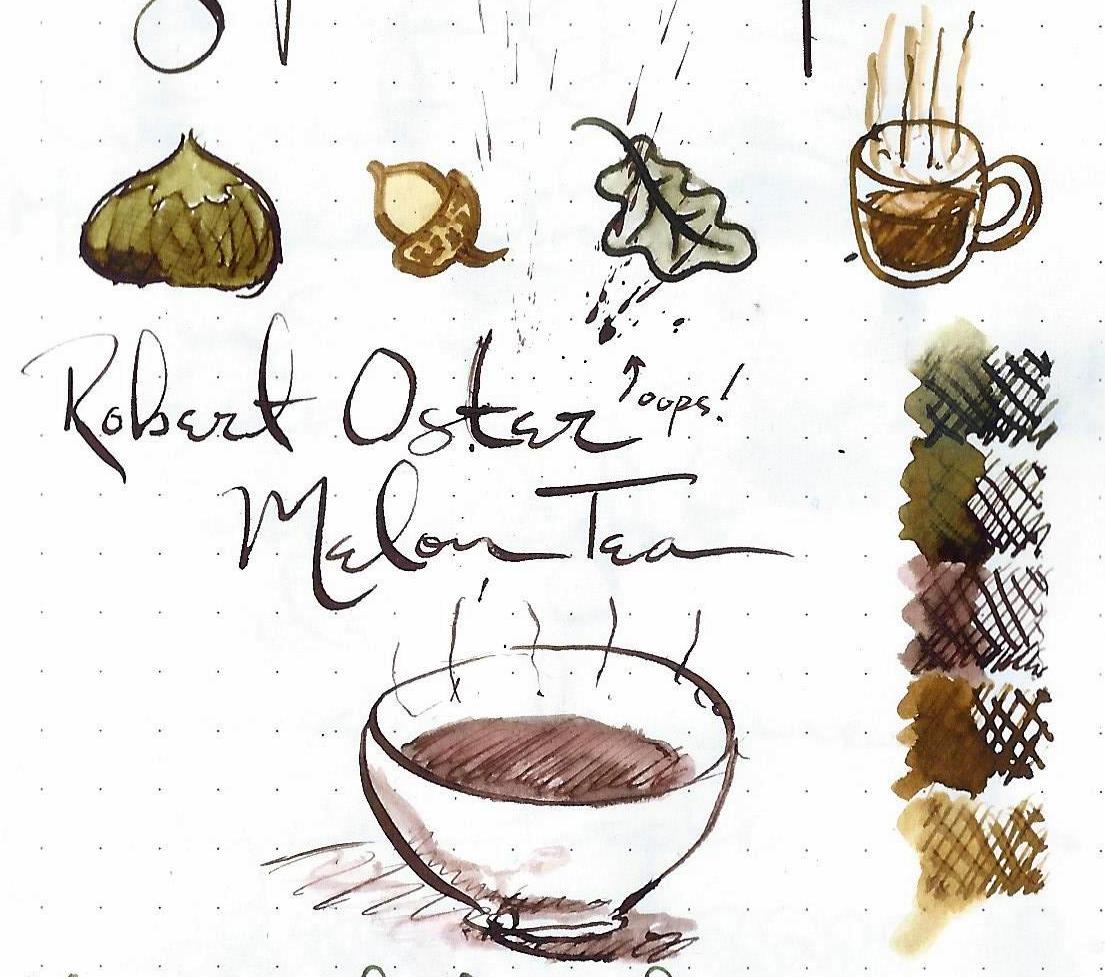 Robert Oster
oops!
Melon Tea